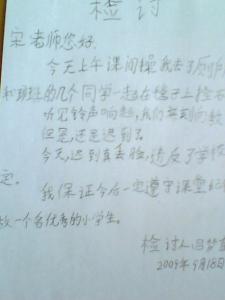 检讨
宋老师您好.
今天上午课间操我去了厕所
和班的几个同学一起在 上检石
听见铃声响起,我们 到教
但是,还是迟到了
今天,迟到真丢脸,违反了学校
定。 我保证今后一定遵守课堂纪
做一个名优秀的小学生。
检讨人
2009年9月18日